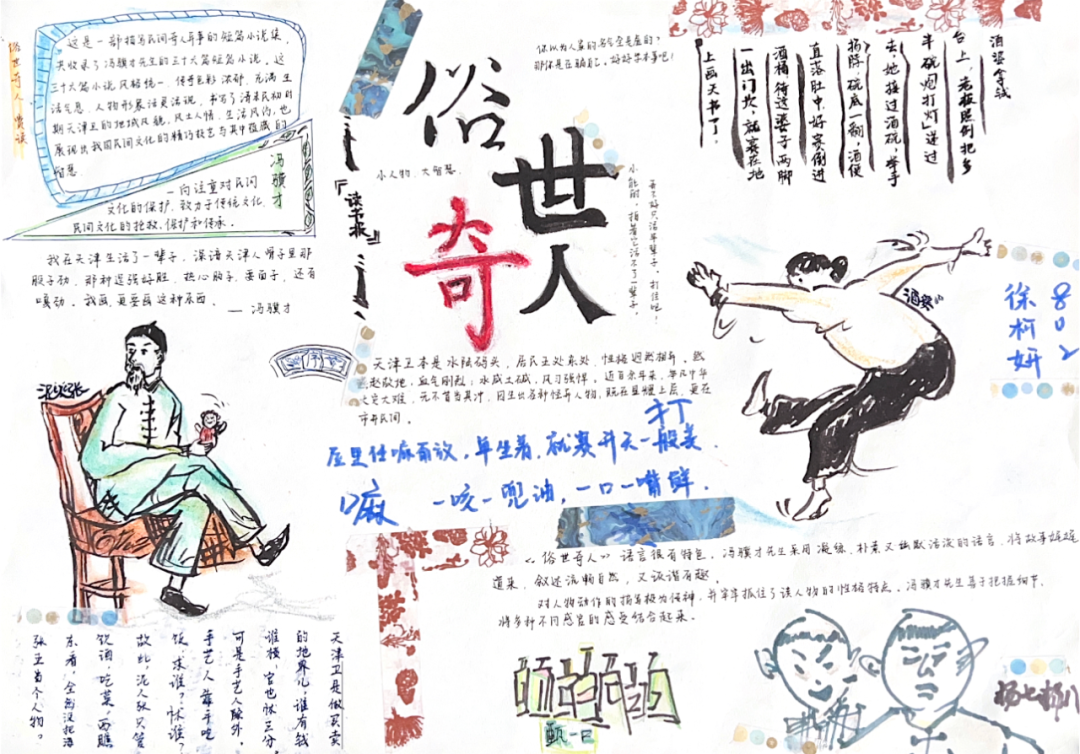 俗世奇人 赏读
这是一部描写民间奇人异事的短篇小说集，
共收录了冯骥才先生的三十六篇短篇小说。这
三十六篇小说风格统一，传奇色彩浓郁，充满生
活气息，人物形象活灵活现，书写了清末民初时
期天津卫的地域风貌、风土人情、生活风俗，也
展现出我国民间文化的精巧技艺与其中蕴藏的
智慧。
冯骥才
一向注重对民间
文化的保护，致力于传统文化、
民间文化的抢救、保护和传承。
我在天津生活了一辈子，深谙天津人骨子里那
股子劲，那种逞强好胜、热心肠子、要面子，还有
嘎劲。我画，更要画这种东西。
— 冯骥才
「读书报」
俗世奇人
小人物，大智慧。
你以为人家的名气全是虚的？
那你是在骗自己。好好学本事吧！
小能耐，指着它活不了一辈子。
酒婆拿钱
台上，老板照例把多
半碗“炮打灯”递过
去，她接过酒碗，举手
扬脖，碗底一翻，酒便
直落肚中，好赛倒进
酒桶。待这婆子两脚
一出门坎，就赛在地
上画天书了。
酒婆
徐柯妍
802
泥人张
天津卫本是水陆码头，居民五处杂处，性格迥然相异。然
燕赵故地，血气刚烈；水咸土碱，风习强悍。近百余年来，每凡中华
大灾大难，无不首当其冲，因生出各种怪异人物，既在显耀上层，更在
市井民间。
屋里任嘛甭放，单坐着，就赛升天一般美。
打
一咬一兜油，一口一嘴鲜。
口麻
《俗世奇人》语言很有特色，冯骥才先生采用凝练、朴素又幽默活泼的语言，将故事娓娓
道来，叙述流畅自然，又诙谐有趣。
对人物动作的描写极为传神，并牢牢抓住了该人物的性格特点。冯骥才先生善于把握细节，
将多种不同感官的感受结合起来。
天津卫是做买卖
的地界儿，谁有钱
谁横，官也怵三分
可是手艺人除外。
手艺人靠手吃
饭，求谁？怵谁？
故此，泥人张只管
饮酒，吃菜，西瞧
东看，全然没把海
张五当个人物。
甄一口
杨七杨八